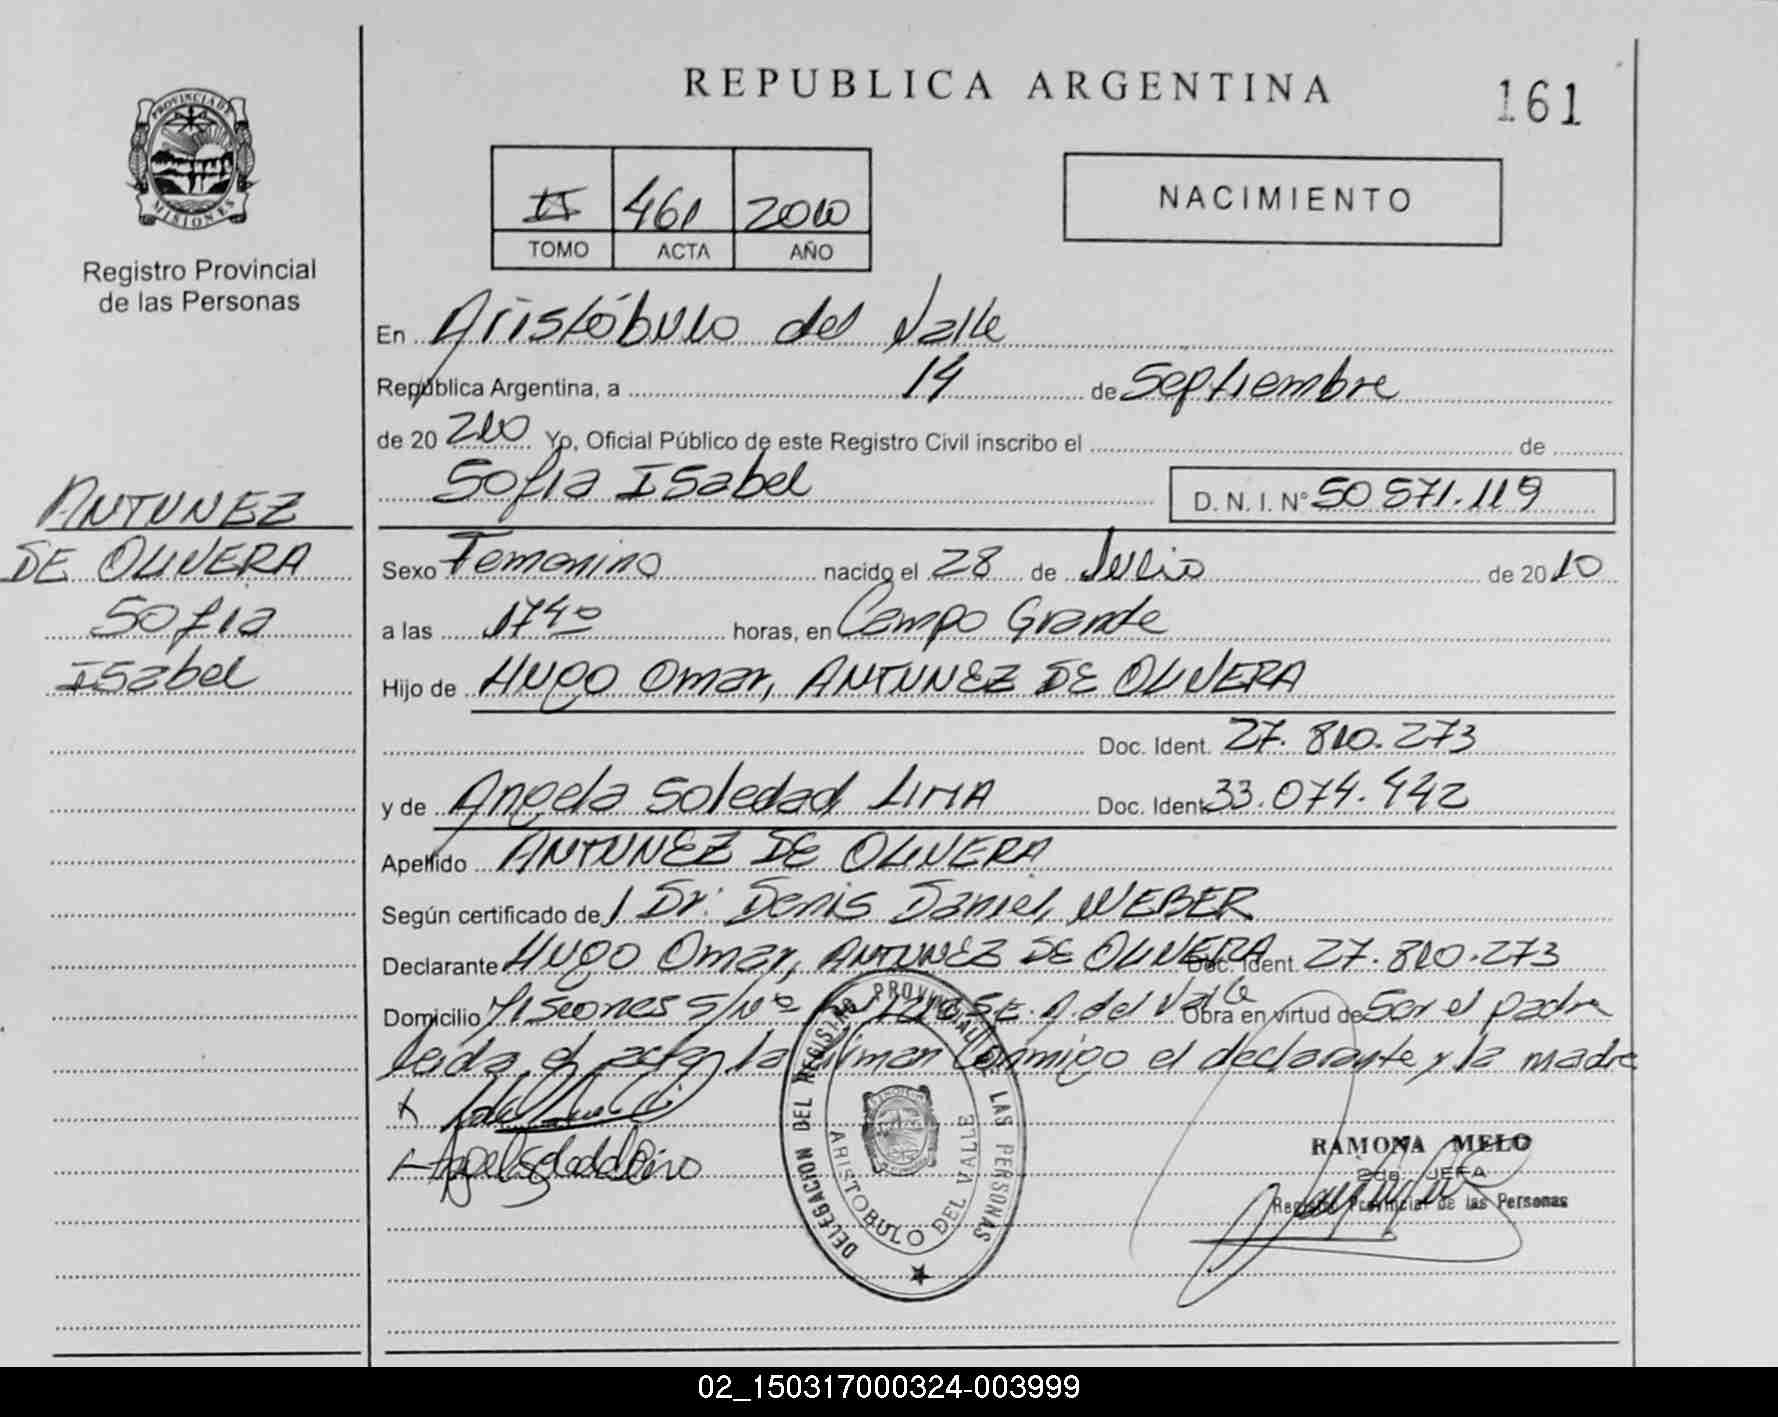 REPUBLICA ARGENTINA
161
PROVINCIA DE MISIONES
Registro Provincial
de las Personas
II 461 2010
TOMO ACTA AÑO
NACIMIENTO
En Aristóbulo del Valle
República Argentina, a 14 de Septiembre
de 20 2010 Yo, Oficial Público de este Registro Civil inscribo el de
Sofia Isabel D. N. I. N° 50.571.119
ANTUNEZ
DE OLIVERA
Sofia
Isabel
Sexo Femenino nacido el 28 de Julio de 20 10
a las 17 40 horas, en Campo Grande
Hijo de Hugo Omar, ANTUNEZ DE OLIVERA
Doc. Ident. 27.810.273
y de Angela Soledad, LIMA Doc. Ident. 33.074.442
Apellido ANTUNEZ DE OLIVERA
Según certificado de / Dr: Denis Daniel, WEBER
Declarante Hugo Omar, ANTUNEZ DE OLIVERA Doc. Ident. 27.810.273
Domicilio Misiones S/Nº A. del Valle Obra en virtud de Ser el padre
leida el acta, la firman Conmigo el declarante y la madre
DELEGACION DEL REGISTRO PROVINCIAL DE LAS PERSONAS
ARISTOBULO DEL VALLE
RAMONA MELO
2da. JEFA
Registro Provincial de las Personas
02_150317000324-003999